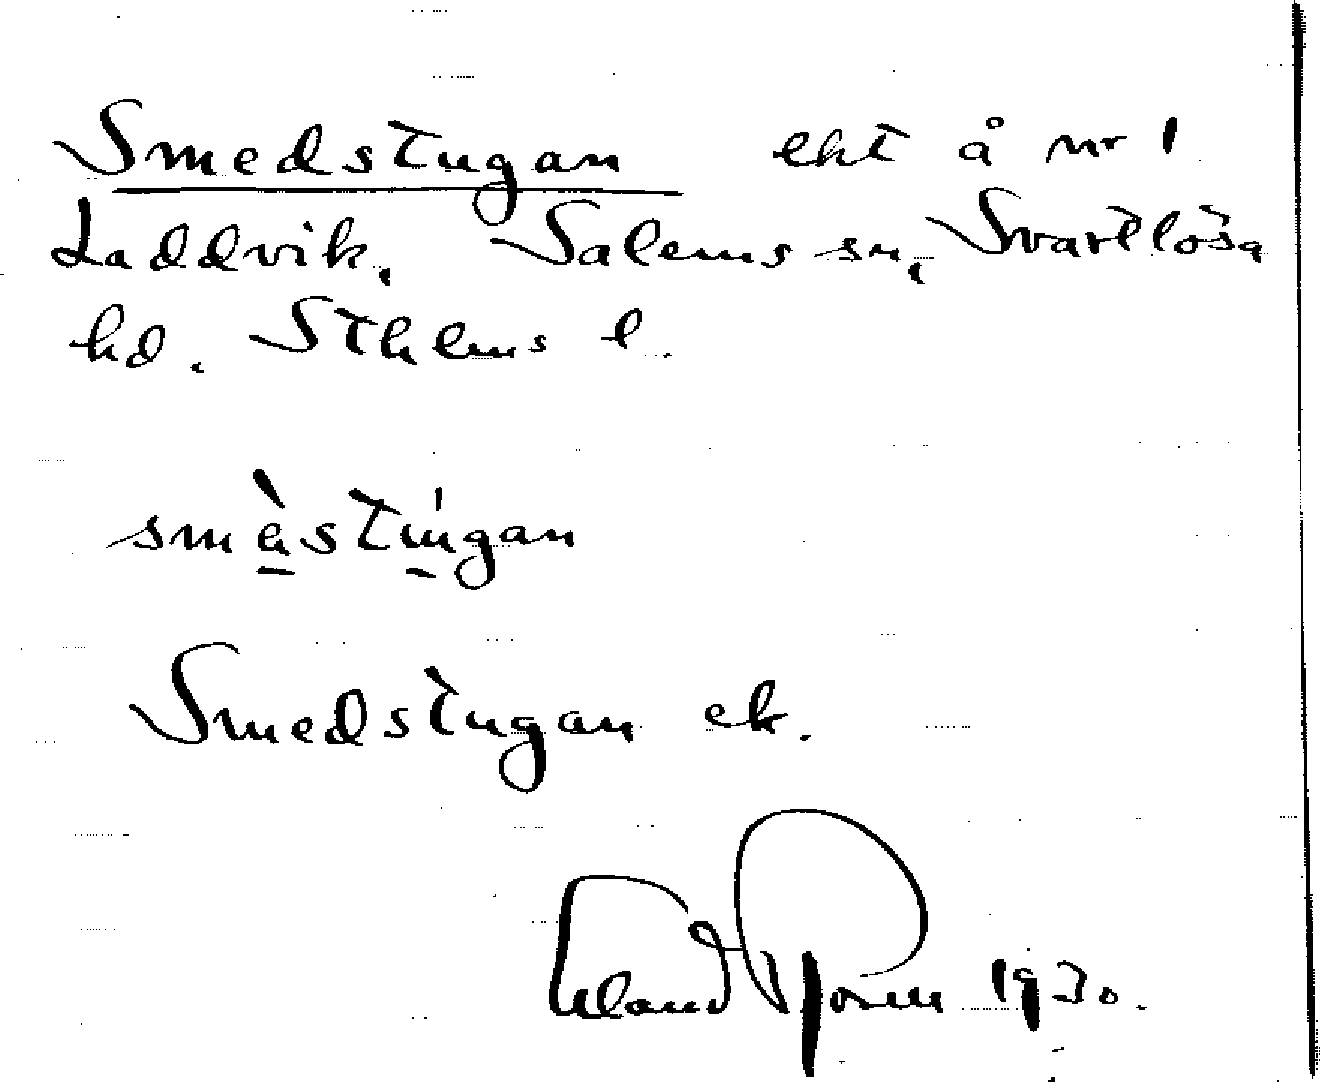 Smedstugan ekt å nr 1
Laddvik, Salems sn, Svartlösa
hd. Sthlms l.
smèstúgan
Smedstugan ek.
1930.